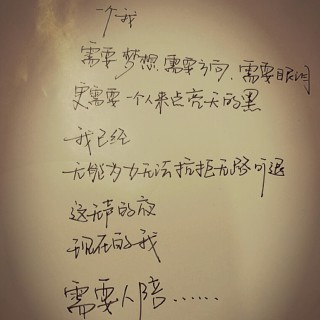 一个我
需要梦想,需要方向,需要眼泪
更需要一个人来点亮天的黑
我已经
无能为力无法抗拒无路可退
这无声的夜
现在的我
需要人陪……